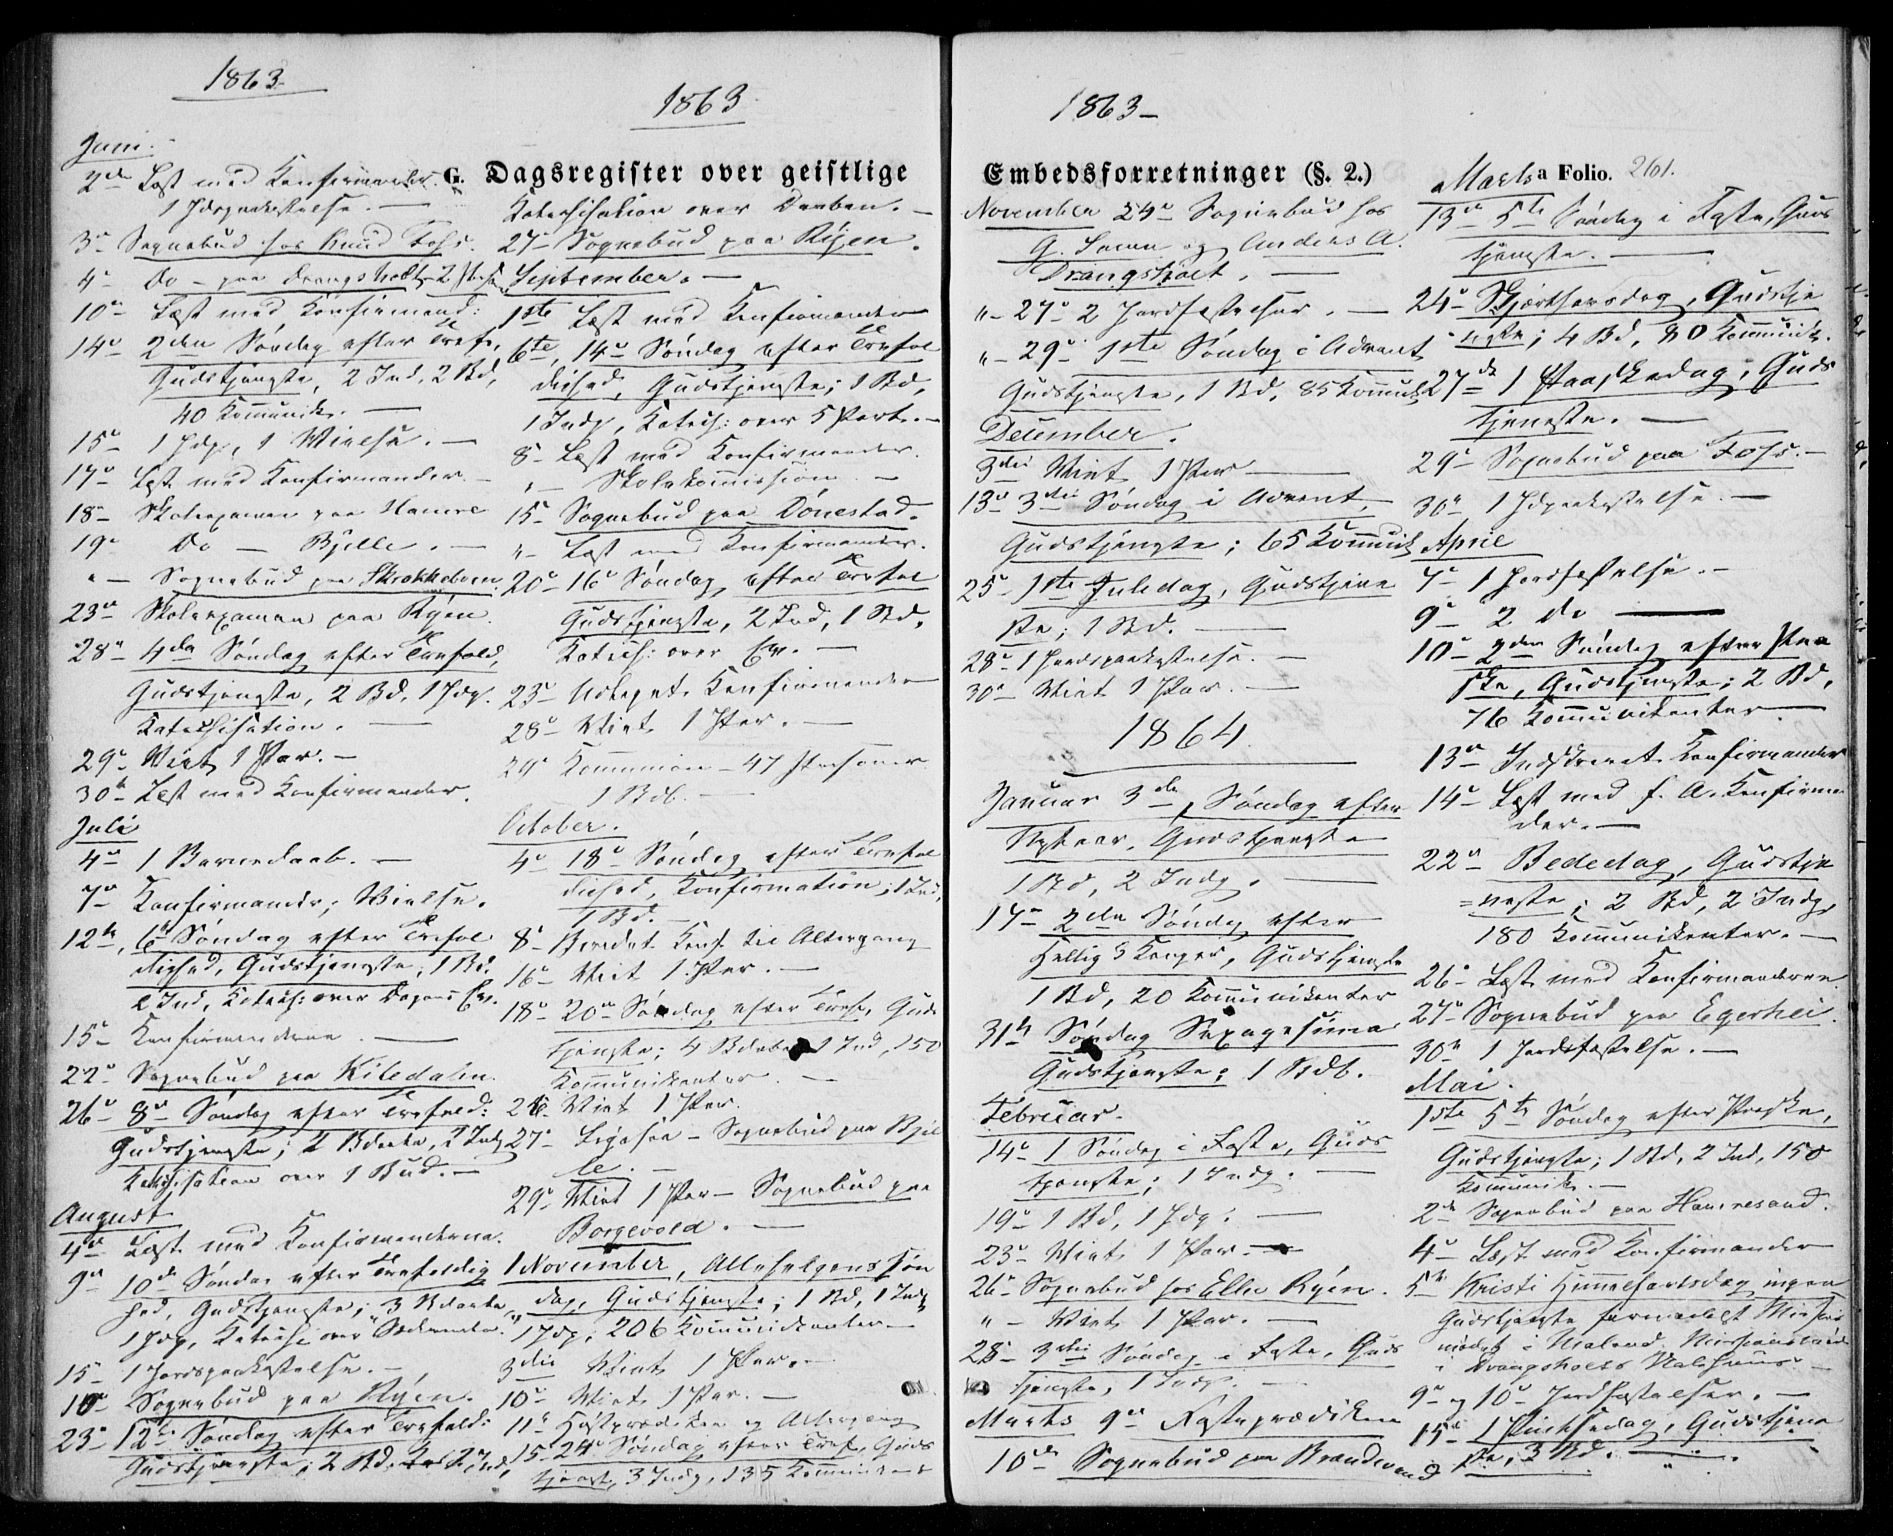 1863
1863
1863
G. Dagsregister over geistlige
Embedsforretninger (§. 2.)
Folio. 261.
Juni.
2de Læst med Konfirmander.
1 Jdspaakastelse.
3e Sognebud hos Knud Foss.
4e Do - paa Drangsholt
10e Læst med Konfirmand:
14e 2den Søndag efter Tref.,
Gudstjeneste, 2 Ind, 2 Bd,
40 Komunik.
15e 1 Jdp, 1 Vielse.
17e Læst med Konfirmander.
18e Skoleexamen paa Hamre
19e Do - Bjelle.
" - Sognebud paa
23de Skoleexamen paa Ryen.
28e 4de Søndag efter Trefold,
Gudstjeneste, 2 Bd, 1 Jdp.
Katechisation.
29e Viet 1 Par.
30te Læst med Konfirmander.
Juli
4de 1 Barnedaab.
7de Konfirmander, Vielse.
12te, 6te Søndag efter Trefol
dighed, Gudstjeneste, 1 Bd.
2 Ind, Katech: over Dagens Ev.
15e Konfirmanderne
22e Sognebud paa Kiledalen.
26e 8de Søndag efter Trefold:
Gudstjeneste; 2 Bdøbte, 2 Indg
Katechisation over 1 Bud.
August
4de Læst med Konfirmanderne.
9de 10de Søndag efter Trefoldig
hed, Gudstjeneste; 3 Bdøbte,
1 Jdp, Katech: over
15e 1 Jordspaakastelse.
Sognebud paa Ryen.
23e 12te Søndag efter Trefold:
Gudstjeneste; 2 Bd, 2 Ind,
Katechisation over Daaben.
27e Sognebud paa Ryen.
September.
1ste Læst med Konfirmander
6te, 14e Søndag efter Trefol
dighed, Gudstjeneste; 1 Bd,
1 Indg, Katech: over 5 Part.
8e Læst med Konfirmander.
" - Skolekomission
15e Sognebud paa Dønestad.
" - Læst med Konfirmander.
20e 16e Søndag efter Trefol
Gudstjeneste, 2 Ind, 1 Bd,
Katech: over Ev.
23e Udtegnet Konfirmander
28e Viet 1 Par.
29e Kommunion - 47 Personer
1 Bdb.
October.
4e 18e Søndag efter Trefol
dighed, Konfirmation; 1 Ind,
1 Bd.
8e Beredet Konf. til Altergang
16e Viet 1 Par.
18e 20de Søndag efter Tref., Guds
tjeneste; 4 Bdøbte, 1 Ind, 150
Kommunikanter.
Viet 1 Par.
27e Ligsøe - Sognebud paa Bjel
le.
29e Viet 1 Par - Sognebud paa
Borgevold.
1 November, Allehelgenssøn
dag, Gudstjeneste; 1 Bd, 1 Indg
1 Jdp, 206 Komunikanter
3die Viet 1 Par.
10e Viet 1 Par.
11e Høstprædiken og Altergang
15e 24e Søndag efter Tref., Guds
tjenest, 3 Indg, 135 Komunikant
November 24e Sognebud hos
G. og Anders A.
Drangsholt.
" - 27e 2 Jordfæstelser.
" - 29e 1ste Søndag i Advent
Gudstjeneste, 1 Bd, 85 Komunik
December.
3die Viet 1 Par
13de 3die Søndag i Advent,
Gudstjeneste; 65 Komunik
25e 1ste Juledag, Gudstjene
ste; 1 Bd.
28e 1 Jordspaakastelse.
30e Viet 1 Par.
1864.
Januar 3de, Søndag efter
Nytaar, Gudstjeneste
1 Bd, 2 Indg.
17e 2den Søndag efter
Hellig 3 Konger, Gudstjeneste
1 Bd, 20 Komunikanter
31te Søndag Sexagesima
Gudstjeneste; 1 Bdb.
Februar.
14e 1 Søndag i Faste, Guds
tjeneste; 1 Indg.
19e 1 Bd, 1 Jdp.
23e Viet 1 Par.
26e Sognebud hos Ellen Ryen.
" - Viet 1 Par.
28e 3die Søndag i Faste, Guds
tjeneste, 1 Indg.
Marts 9de Fasteprædiken
10de Sognebud paa Brandevand
Marts
13de 5te Søndag i Faste, Guds
tjeneste.
24e Skjærthorsdag, Gudstje
neste; 4 Bd, 80 Komunik.
27de 1 Paaskedag, Guds
tjeneste.
29e Sognebud paa Foss.
30te 1 Jdpaakastelse.
April
7e 1 Jordfæstelse.
9e 2 do
10e 2den Søndag efter Paa
ske, Gudstjeneste; 2 Bd,
76 Komunikanter
13de Indskrevet Konfirmander
14e Læst med f. A. Konfirman
der.
22de Bededag, Gudstje
neste; 2 Bd, 2 Indg,
180 Komunikanter.
26e Læst med Konfirmanderne
27e Sognebud paa Egerhei.
30te 1 Jordfæstelse.
Mai.
1ste 5te Søndag efter Paaske,
Gudstjeneste; 1 Bd, 2 Ind, 150
Komunik.
2de Sognebud paa Hamresand.
4e Læst med Konfirmander
5te Kristi Himmelfartsdag ingen
Gudstjeneste formedelst Missions
mødet i
i Drangsholts
9e og 10e Jordfæstelser.
15de 1 Pintsedag, Gudstjene
ste, 3 Bd.